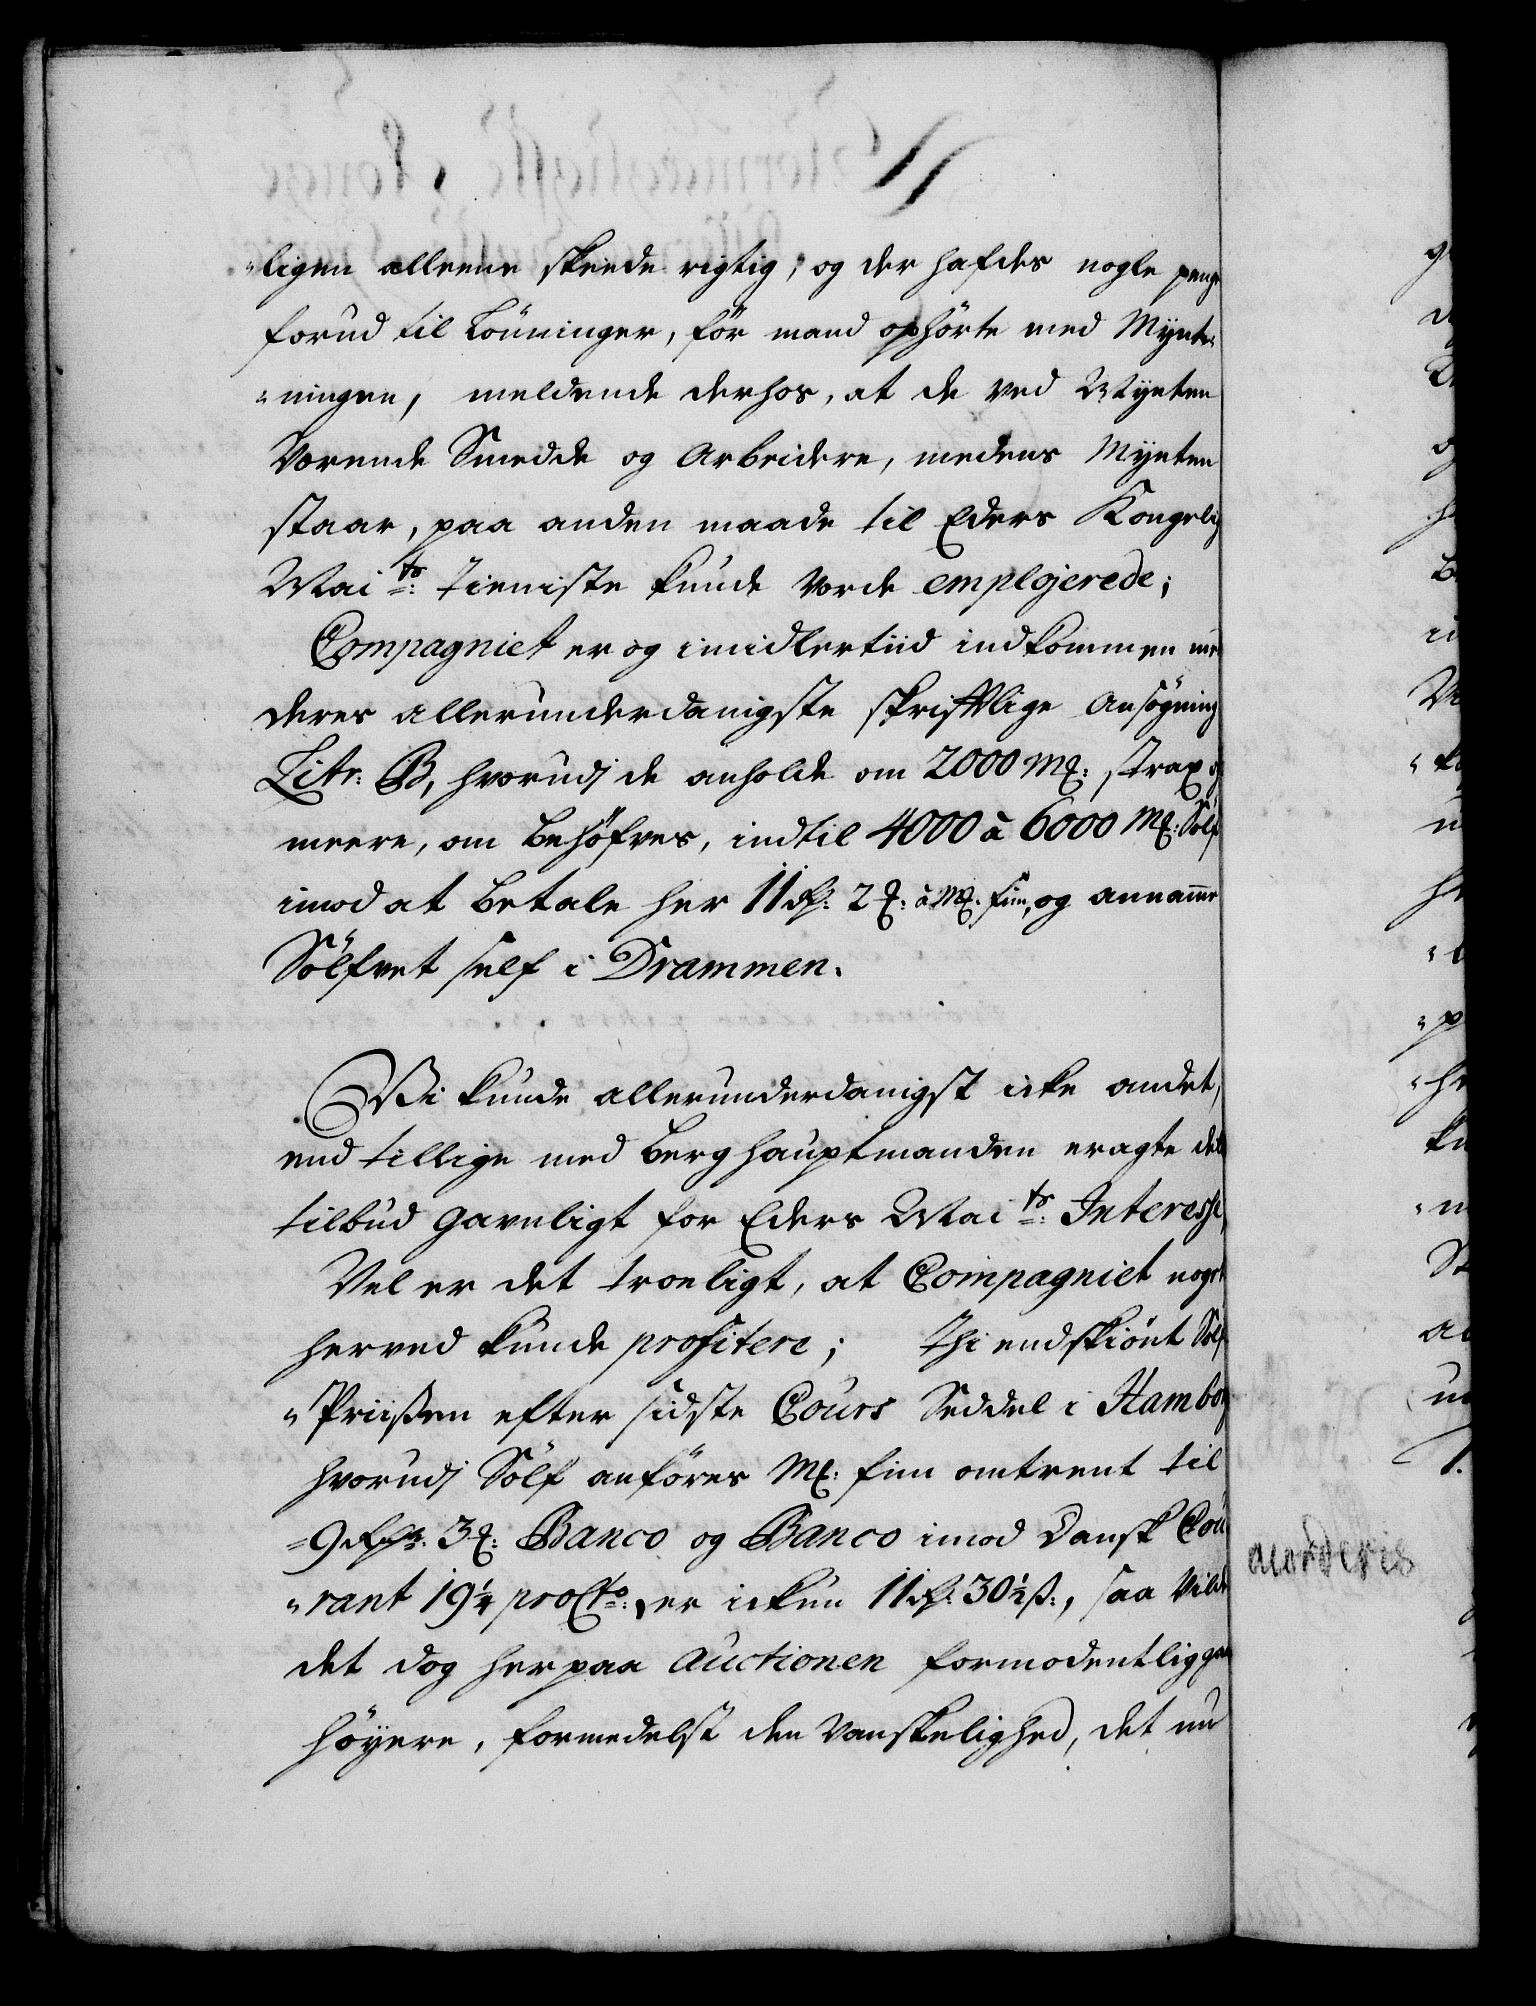 "ligen alleene skeede rigtig, og der hafdes nogle penge
forud til Lønninger, før mand ophörte med Mynt-
"ningen, meldende derhos, at de ved Mynten
værende Smedde og Arbeidere, medens Mynten
staar, paa anden maade til Eders Kongelig
Mai:ts Tieniste kunde vorde emplojerede;
Compagniet er og imidlertiid indkommen med
deres allerunderdanigste skriftlige Ansögning
Litr: B, hvorudj de anholde om 2000 M&: strax og
meere, om behöfves, indtil 4000 à 6000 M&: Sölf
imod at betale her 11 rd: 2 &: à M&: fiin, og annamme
Sölfvet self i Drammen.
Vi kunde allerunderdanigst icke andet,
end tillige med Berghauptmanden eragte dette
tilbud gavnligt for Eders Mai:ts Interesse,
Vel er det troeligt, at Compagniet noget
herved kunde profitere; Thi endskiönt Sölf
"Priisen efter sidste Cours Seddel i Hamborg
hvorudj Sölf anföres M&: fiin omtrent til
9 Rdr. 3 &: Banco og Banco imod Dansk Cou
"rant 19¼ pro Cto:, er ickun 11 rd: 30½ ß:, saa vilde
det dog her paa Auctionen formodentlig gaae
höyere, formedelst den Vanskelighed, det nu